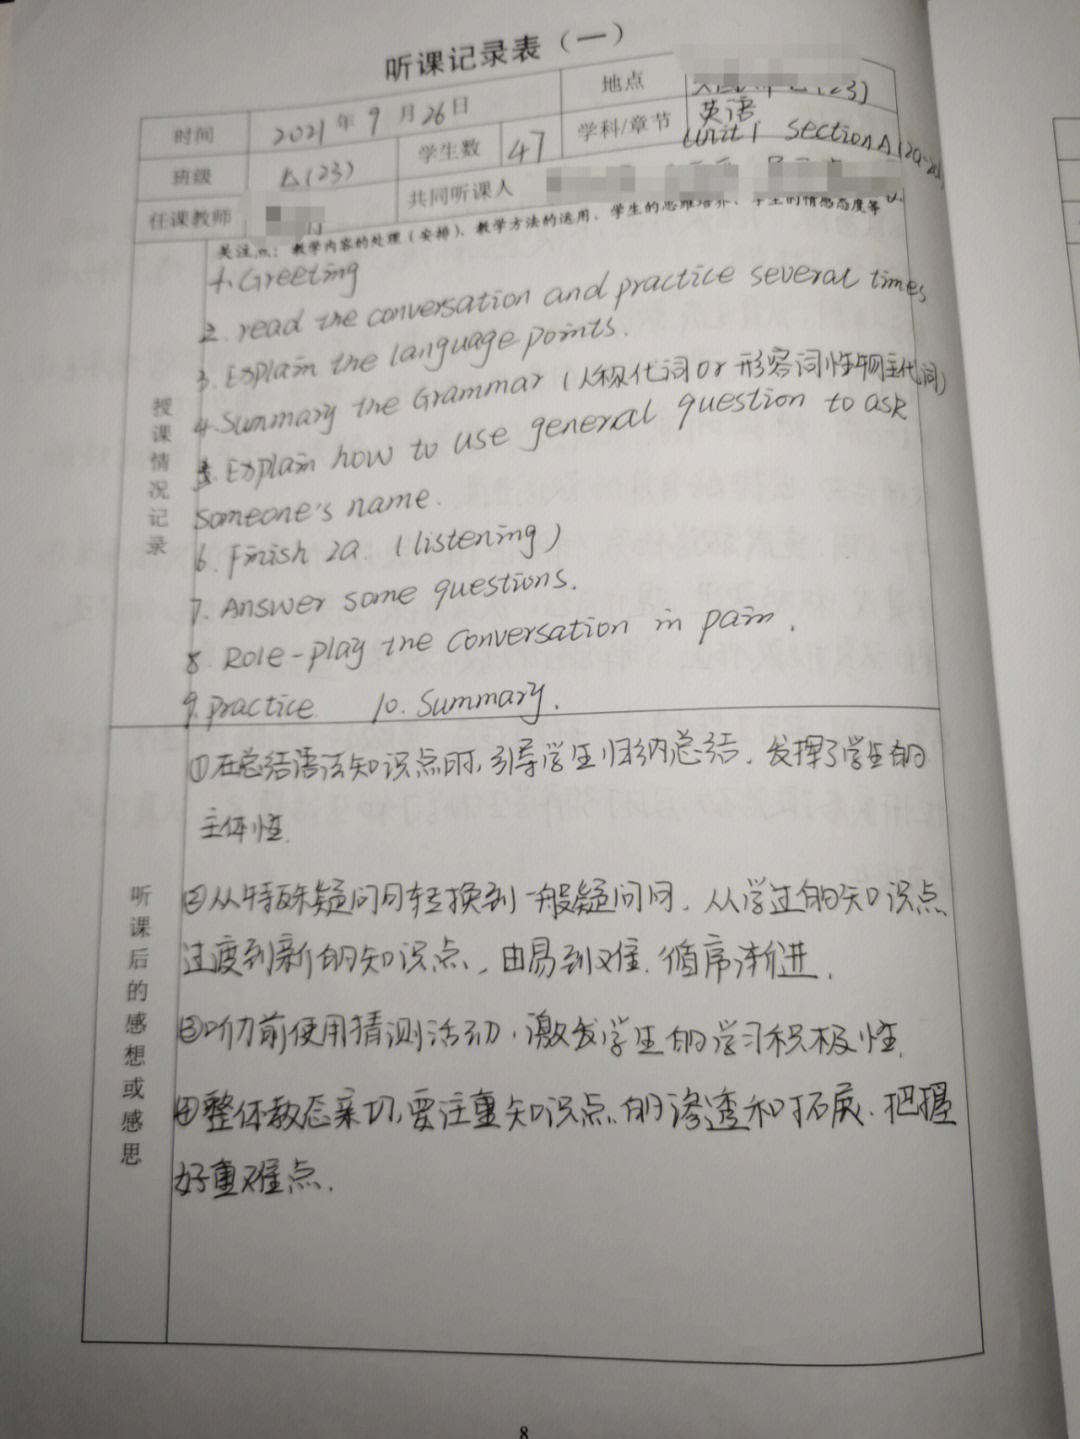 听课记录表（一）
时间 2021年9月26日 地点 (23)
班级 (23) 学生数 47 学科/章节 英语
Unit 1 Section A (2a-2d)
任课教师 共同听课人
关注点：教学内容的处理（安排）、教学方法的运用、学生的思维培养、学生的情感态度等
授课情况记录
1. Greeting
2. read the conversation and practice several times
3. Explain the language points.
4. Summary the Grammar (人称代词 or 形容词性物主代词)
5. Explain how to use general question to ask
someone's name.
6. Finish 2a. (listening)
7. Answer some questions.
8. Role-play the conversation in pairs.
9. practice 10. Summary.
听课后的感想或感思
①在总结语法知识点时,引导学生归纳总结,发挥了学生的
主体性.
②从特殊疑问句转换到一般疑问句,从学过的知识点
过度到新的知识点,由易到难.循序渐进.
③听力前使用猜测活动,激发学生的学习积极性.
④整体教态亲切,要注重知识点的渗透和拓展.把握
好重难点.
8